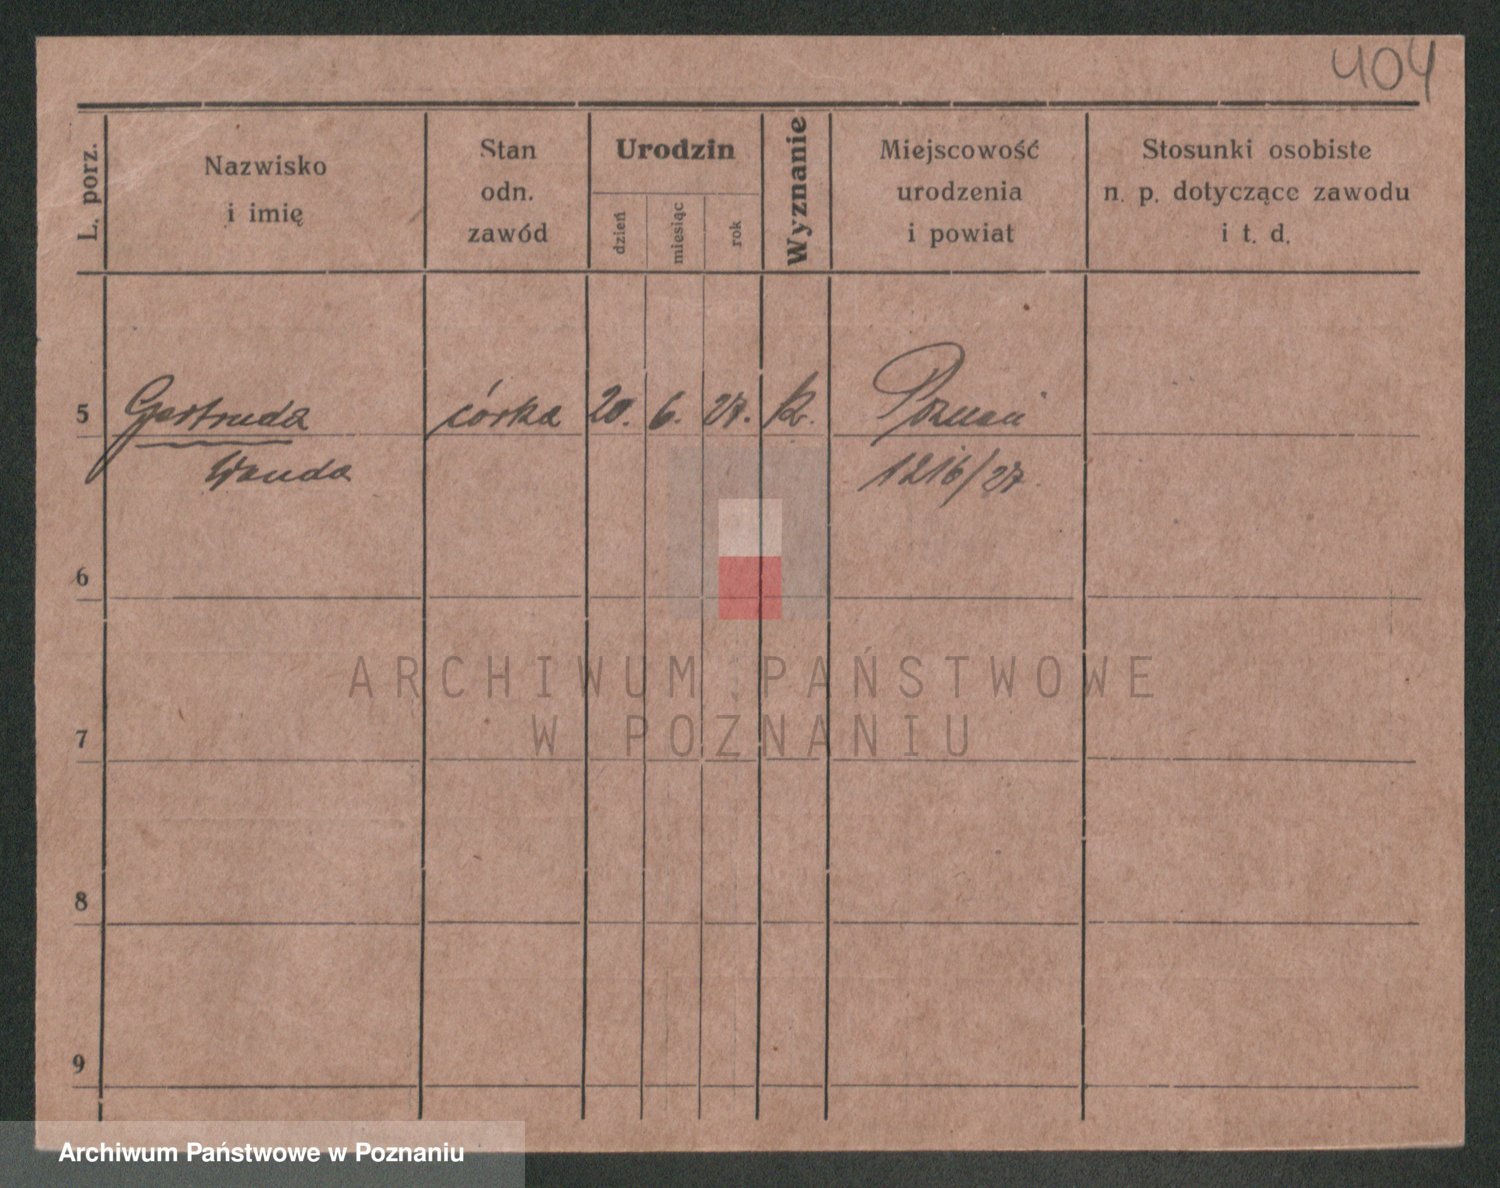 404
L. porz.
Nazwisko
i imię
Stan
odn.
zawód
Urodzin
dzień
miesiąc
rok
Wyznanie
Miejscowość
urodzenia
i powiat
Stosunki osobiste
n. p. dotyczące zawodu
i t. d.
5 Gertruda córka 20. 6. 27. k. Poznań
Wanda 1216/27.
6
ARCHIWUM PAŃSTWOWE
W POZNANIU
7
8
9
Archiwum Państwowe w Poznaniu